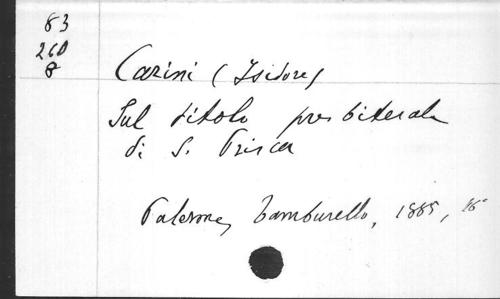 83
260
8
Carini (Isidore)
Sul titolo presbiterale
di S. Prisca
Palermo, Tamburello, 1885, 16°